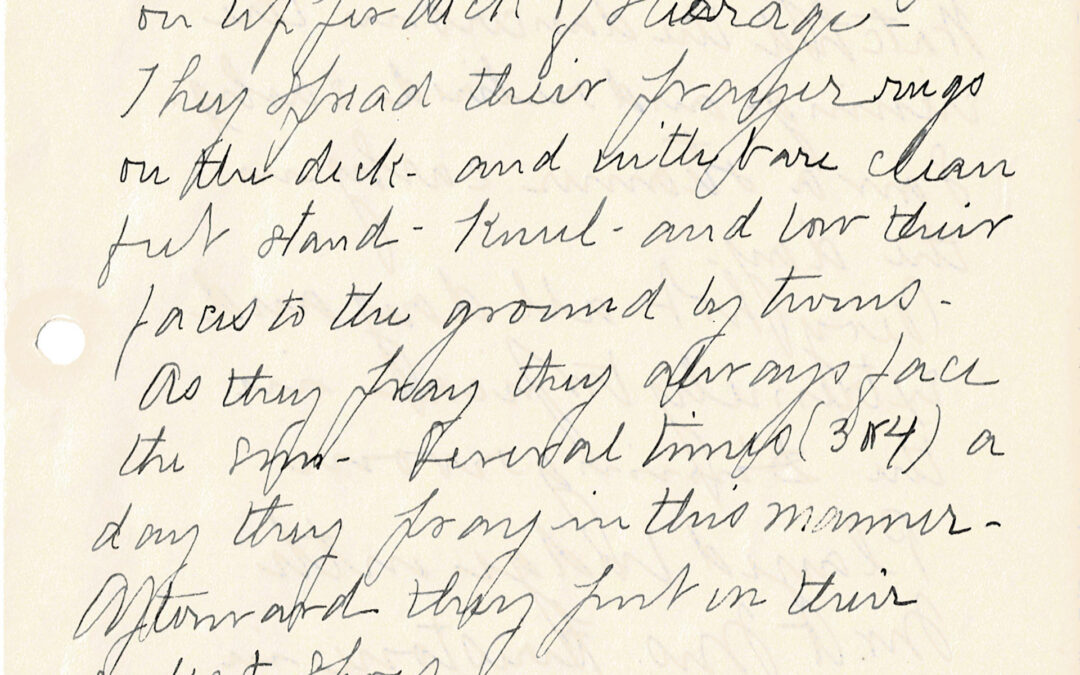 on up for deck of steerage -
They spread their prayer rugs
on the deck - and with bare clean
feet stand - Kneel - and bow their
faces to the ground by turns -
As they pray they always face
the sun - Several times (3 or 4) a
day they pray in this manner -
Afterward they put on their
shoes